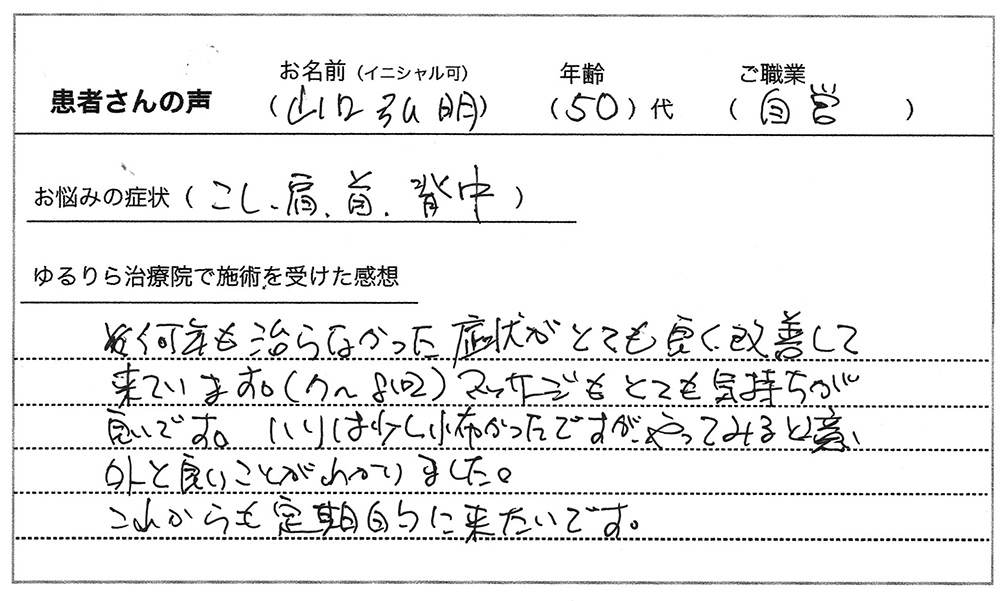 患者さんの声 お名前（イニシャル可） 年齢 ご職業
（山口弘明）（50）代（自営）
お悩みの症状（こし、肩、首、背中）
ゆるりら治療院で施術を受けた感想
何年も治らなかった症状がとても良く改善して
来ています。（7〜8回）マッサージもとても気持ちが
良いです。ハリは少し怖かったですが、やってみると意
外と良いことがわかりました。
これからも定期的に来たいです。